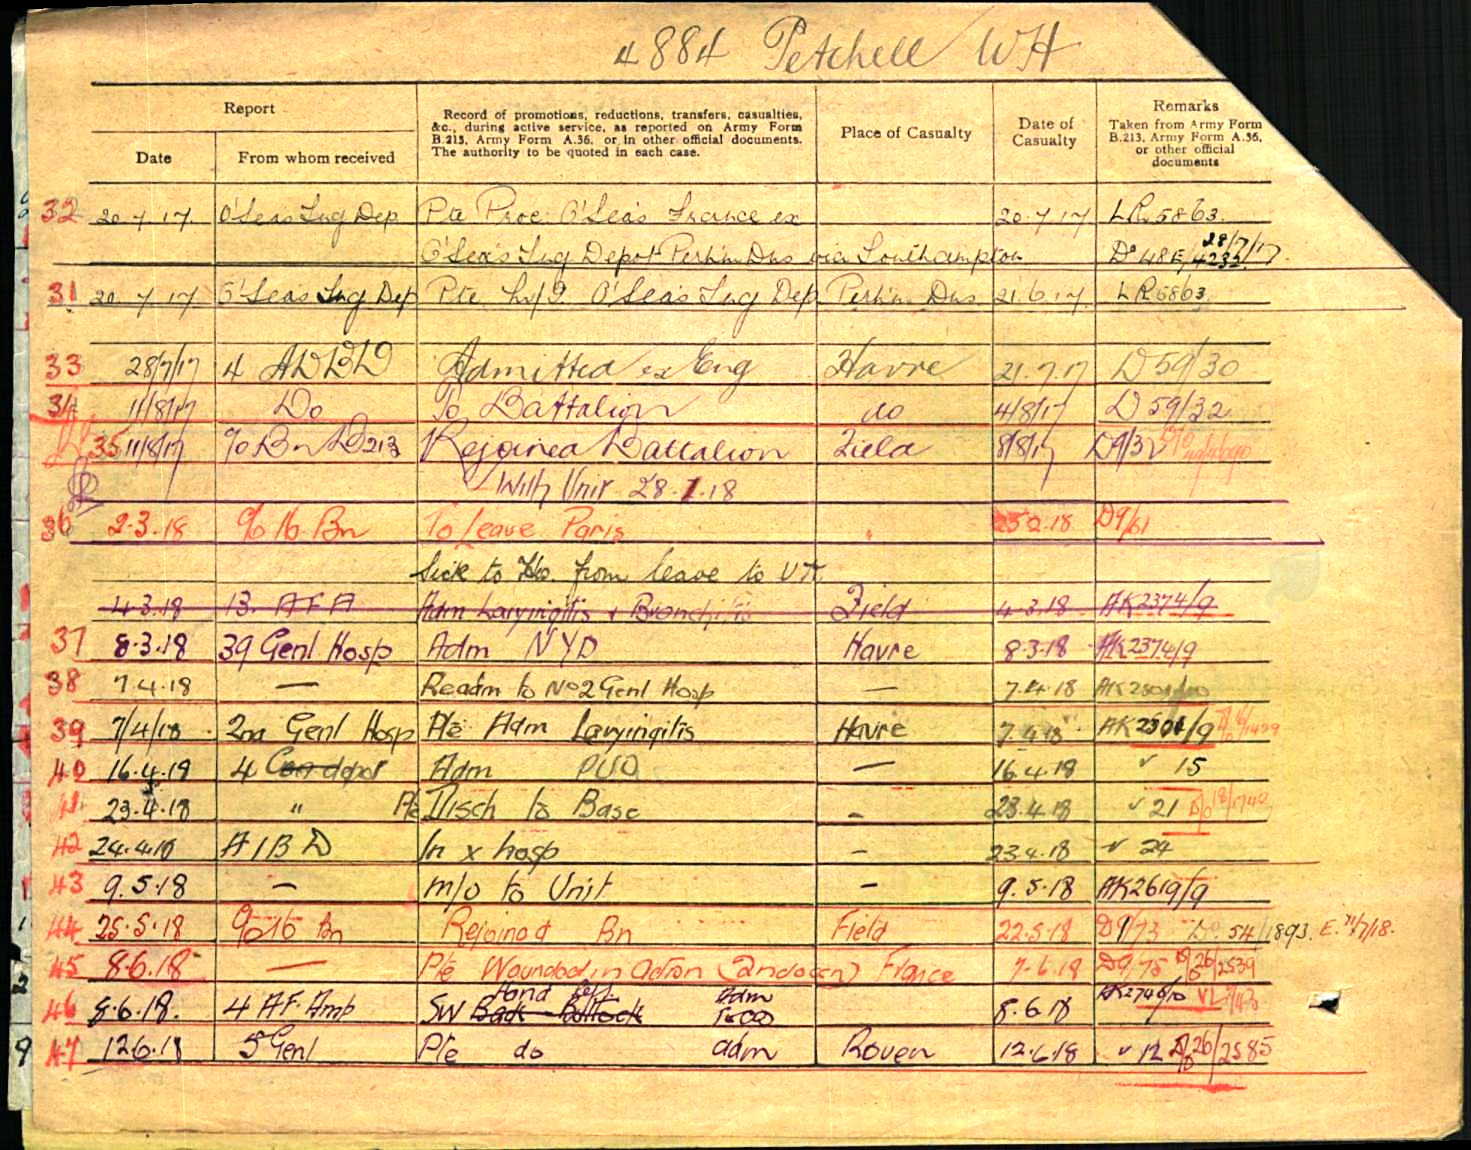 4884 Petchell WH
Report
Record of promotions, reductions, transfers, casualties, &c., during active service, as reported on Army Form B.213, Army Form A.36, or in other official documents. The authority to be quoted in each case.
Place of Casualty
Date of Casualty
Remarks
Taken from Army Form B.213, Army Form A.36, or other official documents
Date
From whom received
32 20 7 17 O'Seas Tng Dep Pte Proc. O'Seas France ex 20.7.17 LR 5863.
O'Seas Tng Depot Perhm Dns via Southampton 28/7/17
31 20 7 17 O'Seas Tng Dep Pte O'Seas Tng Dep Perhm Dns 21.6.17 LR 5863
33 28/7/17 4 ADBD Admitted ex Eng Havre 21.7.17 D 59/30
34 11/8/17 Do To Battalion do 4/8/17 D 59/32
35 11/8/17 Rejoined Battalion Field 8/8/17 D9/32
With Unit 28.1.18
36 2.3.18 % 16 Bn To Leave Paris 25 2.18 D9/61
Sick to from leave to UK
4.3.18 13. AFA Adm Laryingitis + Bronchitis Field 4.3.18. AK2374/9
37 8.3.18 39 Genl Hosp Adm NYD Havre 8.3.18 AK2374/9
38 7.4.18 — Readm to No 2 Genl Hosp — 7.4.18
39 7/4/18 2nd Genl Hosp Pte Adm Laryingitis Havre 7.4.18 AK2501/9
40 16.4.18 4 Con depot Adm PUO — 16.4.18 " 15
41 23.4.18 " Pte Disch to Base - 23.4.18 " 21
42 24.4.18 A1BD In x hosp - 23.4.18 " 24
43 9.5.18 — m/o to Unit - 9.5.18 AK2619/9
44 25.5.18 % 16 Bn Rejoined Bn Field 22.5.18 D9/73 Do 54/1893. E.
45 8.6.18 — Pte Wounded in action (2nd occn) France 7.6.18 D9/75 26/2539
Hand left
46 8.6.18. 4 AF Amb SW Back Buttock Adm 8.6.18
47 12.6.18 5 Genl Pte do adm Rouen 12.6.18 " 12 26/2585